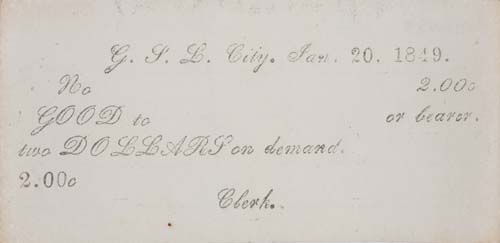 G. S. L. City. Jan. 20. 1849.
No 2.00c
GOOD to or bearer.
two DOLLARS on demand.
2.00c
Clerk.